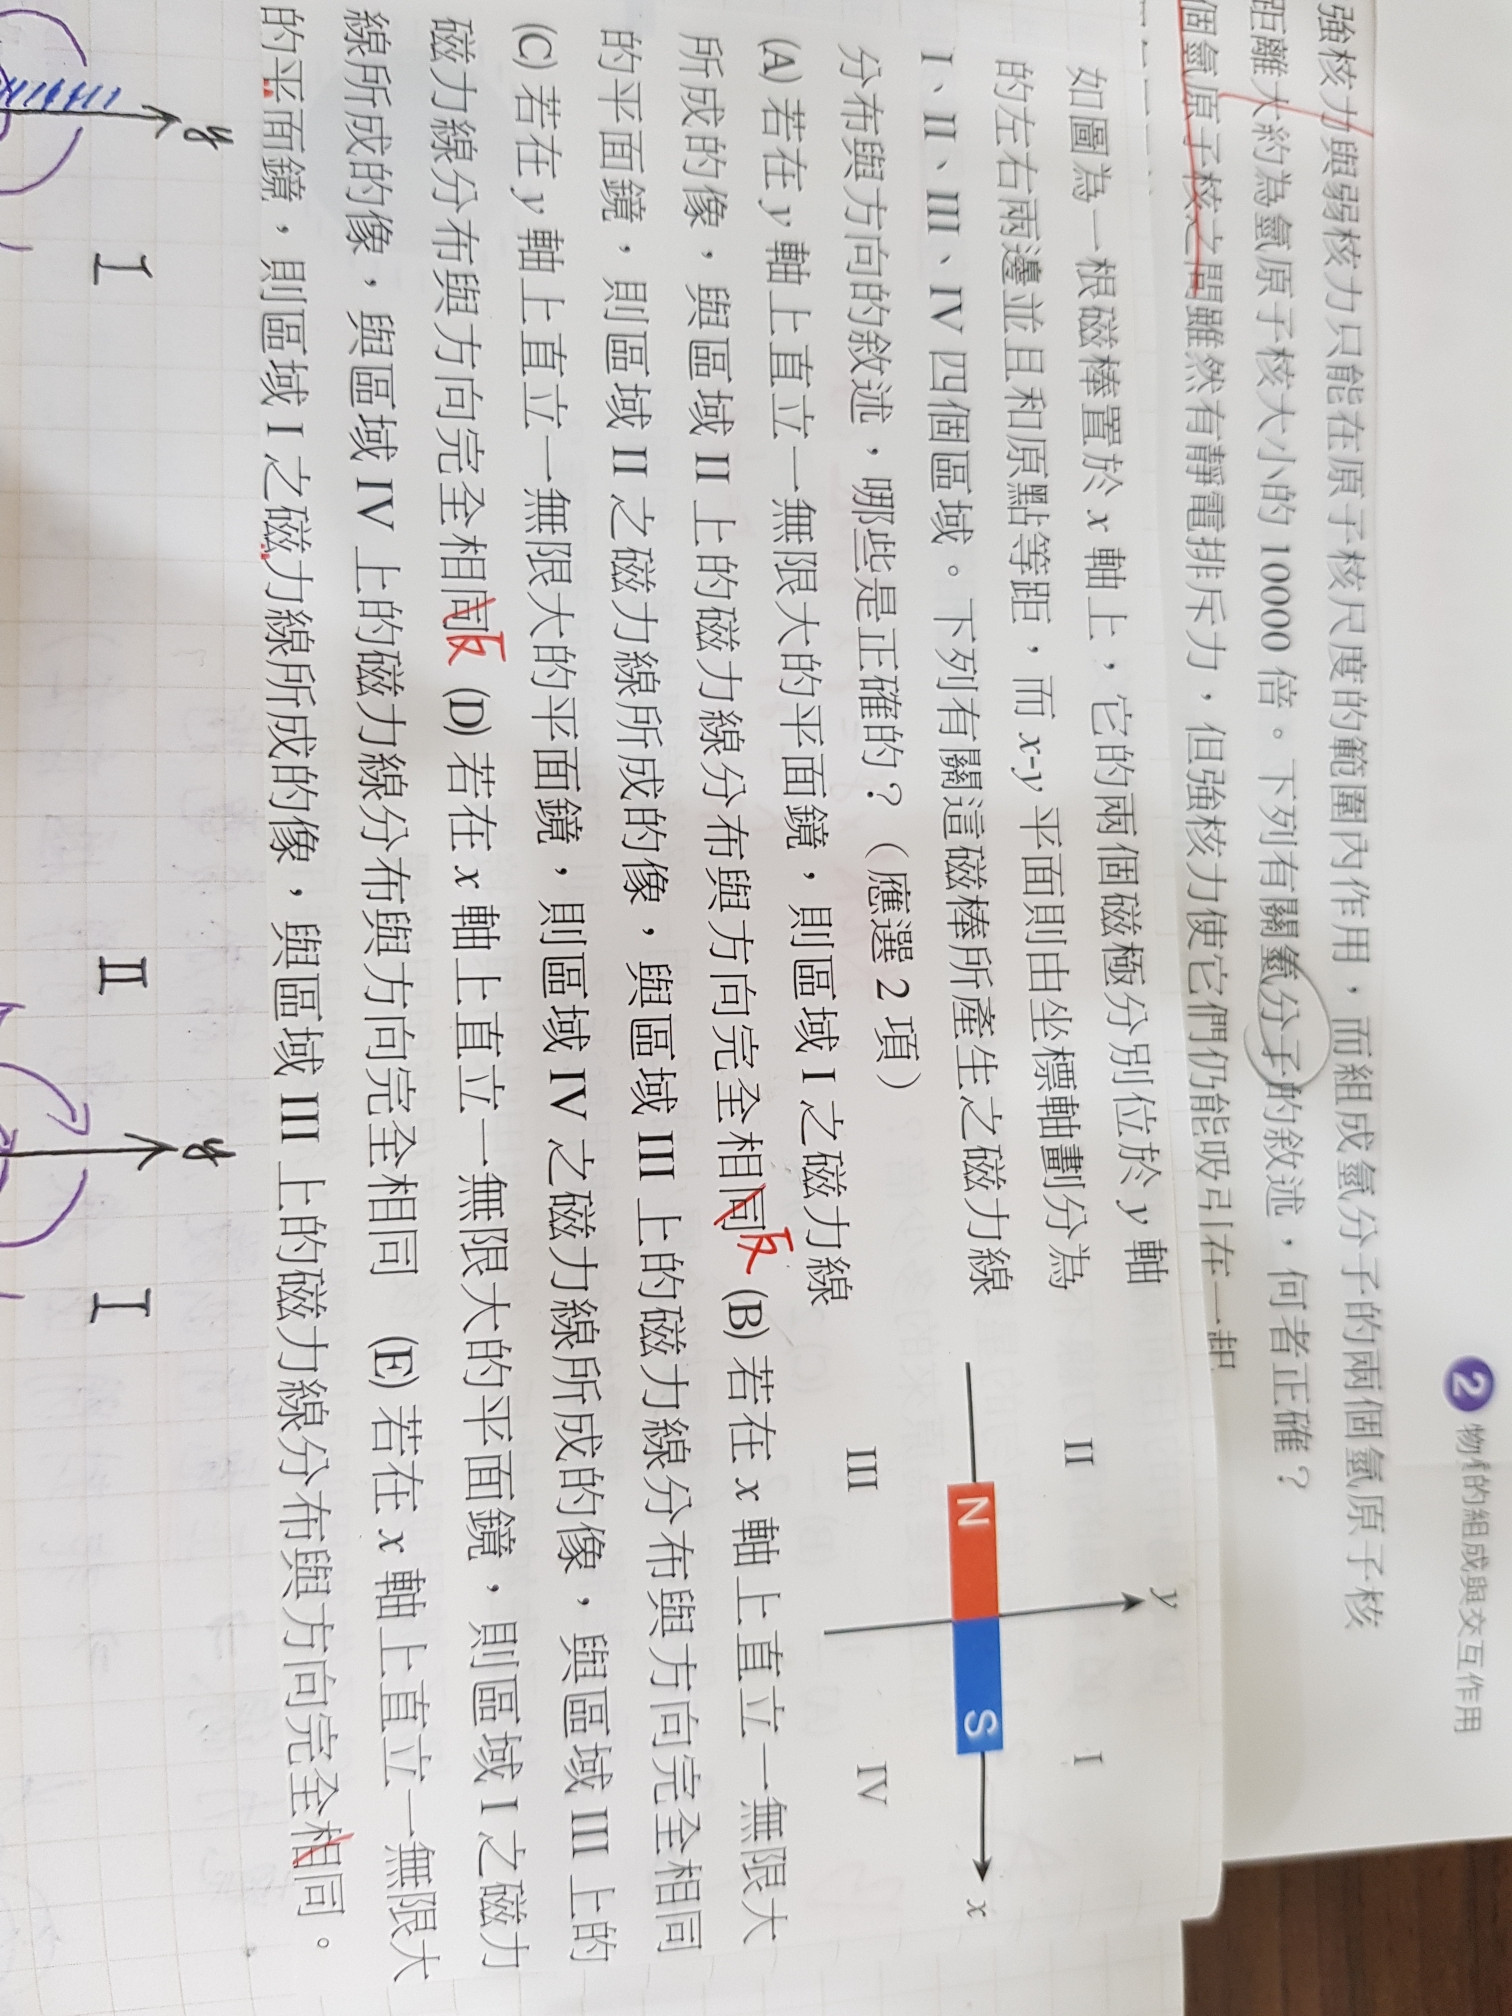 2 物體的組成與交互作用
強核力與弱核力只能在原子核尺度的範圍內作用，而組成氫分子的兩個氫原子核
距離大約為氫原子核大小的 10000 倍。下列有關氫分子的敘述，何者正確？
個氫原子核之間雖然有靜電排斥力，但強核力使它們仍能吸引在一起
如圖為一根磁棒置於 x 軸上，它的兩個磁極分別位於 y 軸
的左右兩邊並且和原點等距，而 x-y 平面則由坐標軸劃分為
I、II、III、IV 四個區域。下列有關這磁棒所產生之磁力線
分布與方向的敘述，哪些是正確的？（應選 2 項）
y
II
I
N
S
x
III
IV
(A) 若在 y 軸上直立一無限大的平面鏡，則區域 I 之磁力線
所成的像，與區域 II 上的磁力線分布與方向完全相同 反 (B) 若在 x 軸上直立一無限大
的平面鏡，則區域 II 之磁力線所成的像，與區域 III 上的磁力線分布與方向完全相同
(C) 若在 y 軸上直立一無限大的平面鏡，則區域 IV 之磁力線所成的像，與區域 III 上的
磁力線分布與方向完全相同 反 (D) 若在 x 軸上直立一無限大的平面鏡，則區域 I 之磁力
線所成的像，與區域 IV 上的磁力線分布與方向完全相同 (E) 若在 x 軸上直立一無限大
的平面鏡，則區域 I 之磁力線所成的像，與區域 III 上的磁力線分布與方向完全相同。
y
I
II
y
I